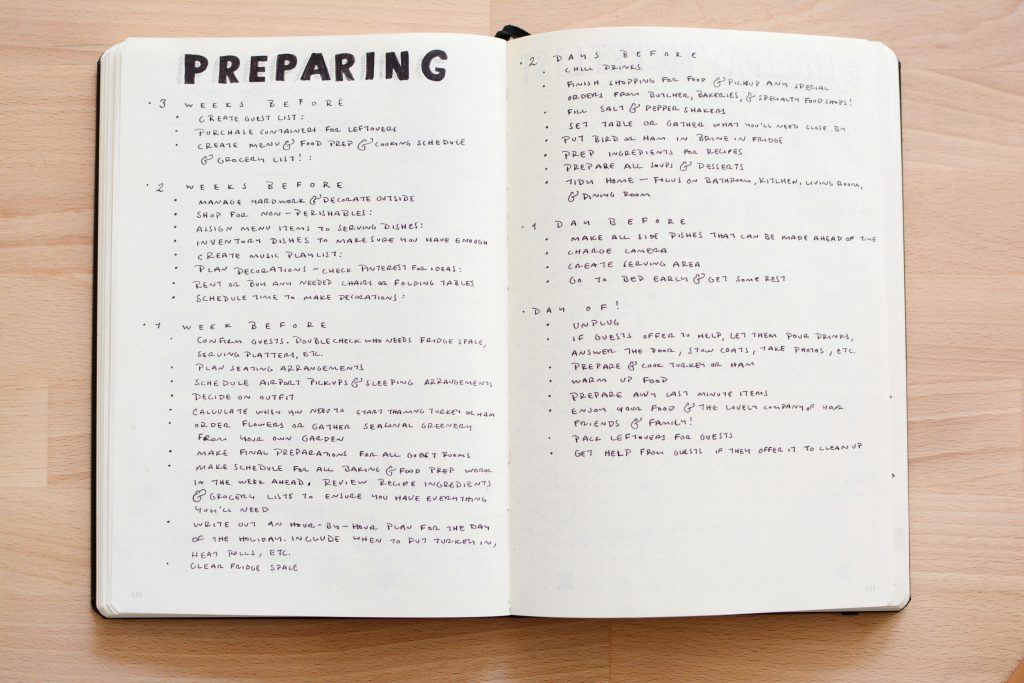 PREPARING
· 3 WEEKS BEFORE
• CREATE GUEST LIST:
• PURCHASE CONTAINERS FOR LEFTOVERS
• CREATE MENU & FOOD PREP & COOKING SCHEDULE
& GROCERY LIST!:
2 WEEKS BEFORE
• MANAGE YARDWORK & DECORATE OUTSIDE
• SHOP FOR NON-PERISHABLES:
• ASSIGN MENU ITEMS TO SERVING DISHES:
• INVENTORY DISHES TO MAKE SURE YOU HAVE ENOUGH
• CREATE MUSIC PLAYLIST:
• PLAN DECORATIONS - CHECK PINTEREST FOR IDEAS:
• RENT OR BUY ANY NEEDED CHAIRS OR FOLDING TABLES
• SCHEDULE TIME TO MAKE DECORATIONS:
· 1 WEEK BEFORE
• CONFIRM GUESTS. DOUBLECHECK WHO NEEDS FRIDGE SPACE,
SERVING PLATTERS, ETC.
• PLAN SEATING ARRANGEMENTS
• SCHEDULE AIRPORT PICKUPS & SLEEPING ARRANGEMENTS
• DECIDE ON OUTFIT
• CALCULATE WHEN YOU NEED TO START THAWING TURKEY OR HAM
• ORDER FLOWERS OR GATHER SEASONAL GREENERY
FROM YOUR OWN GARDEN
• MAKE FINAL PREPARATIONS FOR ALL GUEST ROOMS
• MAKE SCHEDULE FOR ALL BAKING & FOOD PREP WORK
IN THE WEEK AHEAD. REVIEW RECIPE INGREDIENTS
& GROCERY LISTS TO ENSURE YOU HAVE EVERYTHING
YOU'LL NEED
• WRITE OUT AN HOUR-BY-HOUR PLAN FOR THE DAY
OF THE HOLIDAY. INCLUDE WHEN TO PUT TURKEY IN,
HEAT ROLLS, ETC.
• CLEAR FRIDGE SPACE
· 2 DAYS BEFORE
• CHILL DRINKS
• FINISH SHOPPING FOR FOOD & PICKUP ANY SPECIAL
ORDERS FROM BUTCHER, BAKERIES, & SPECIALTY FOOD SHOPS!
• FILL SALT & PEPPER SHAKERS
• SET TABLE OR GATHER WHAT YOU'LL NEED CLOSE BY
• PUT BIRD OR HAM IN BRINE IN FRIDGE
• PREP INGREDIENTS FOR RECIPES
• PREPARE ALL SOUPS & DESSERTS
• TIDY HOME - FOCUS ON BATHROOM, KITCHEN, LIVING ROOM,
& DINING ROOM
· 1 DAY BEFORE
• MAKE ALL SIDE DISHES THAT CAN BE MADE AHEAD OF TIME
• CHARGE CAMERA
• CREATE SERVING AREA
• GO TO BED EARLY & GET SOME REST
· DAY OF!
• UNPLUG
• IF GUESTS OFFER TO HELP, LET THEM POUR DRINKS,
ANSWER THE DOOR, STOW COATS, TAKE PHOTOS, ETC.
• PREPARE & COOK TURKEY OR HAM
• WARM UP FOOD
• PREPARE ANY LAST MINUTE ITEMS
• ENJOY YOUR FOOD & THE LOVELY COMPANY OF YOUR
FRIENDS & FAMILY!
• PACK LEFTOVERS FOR GUESTS
• GET HELP FROM GUESTS IF THEY OFFER IT TO CLEAN UP